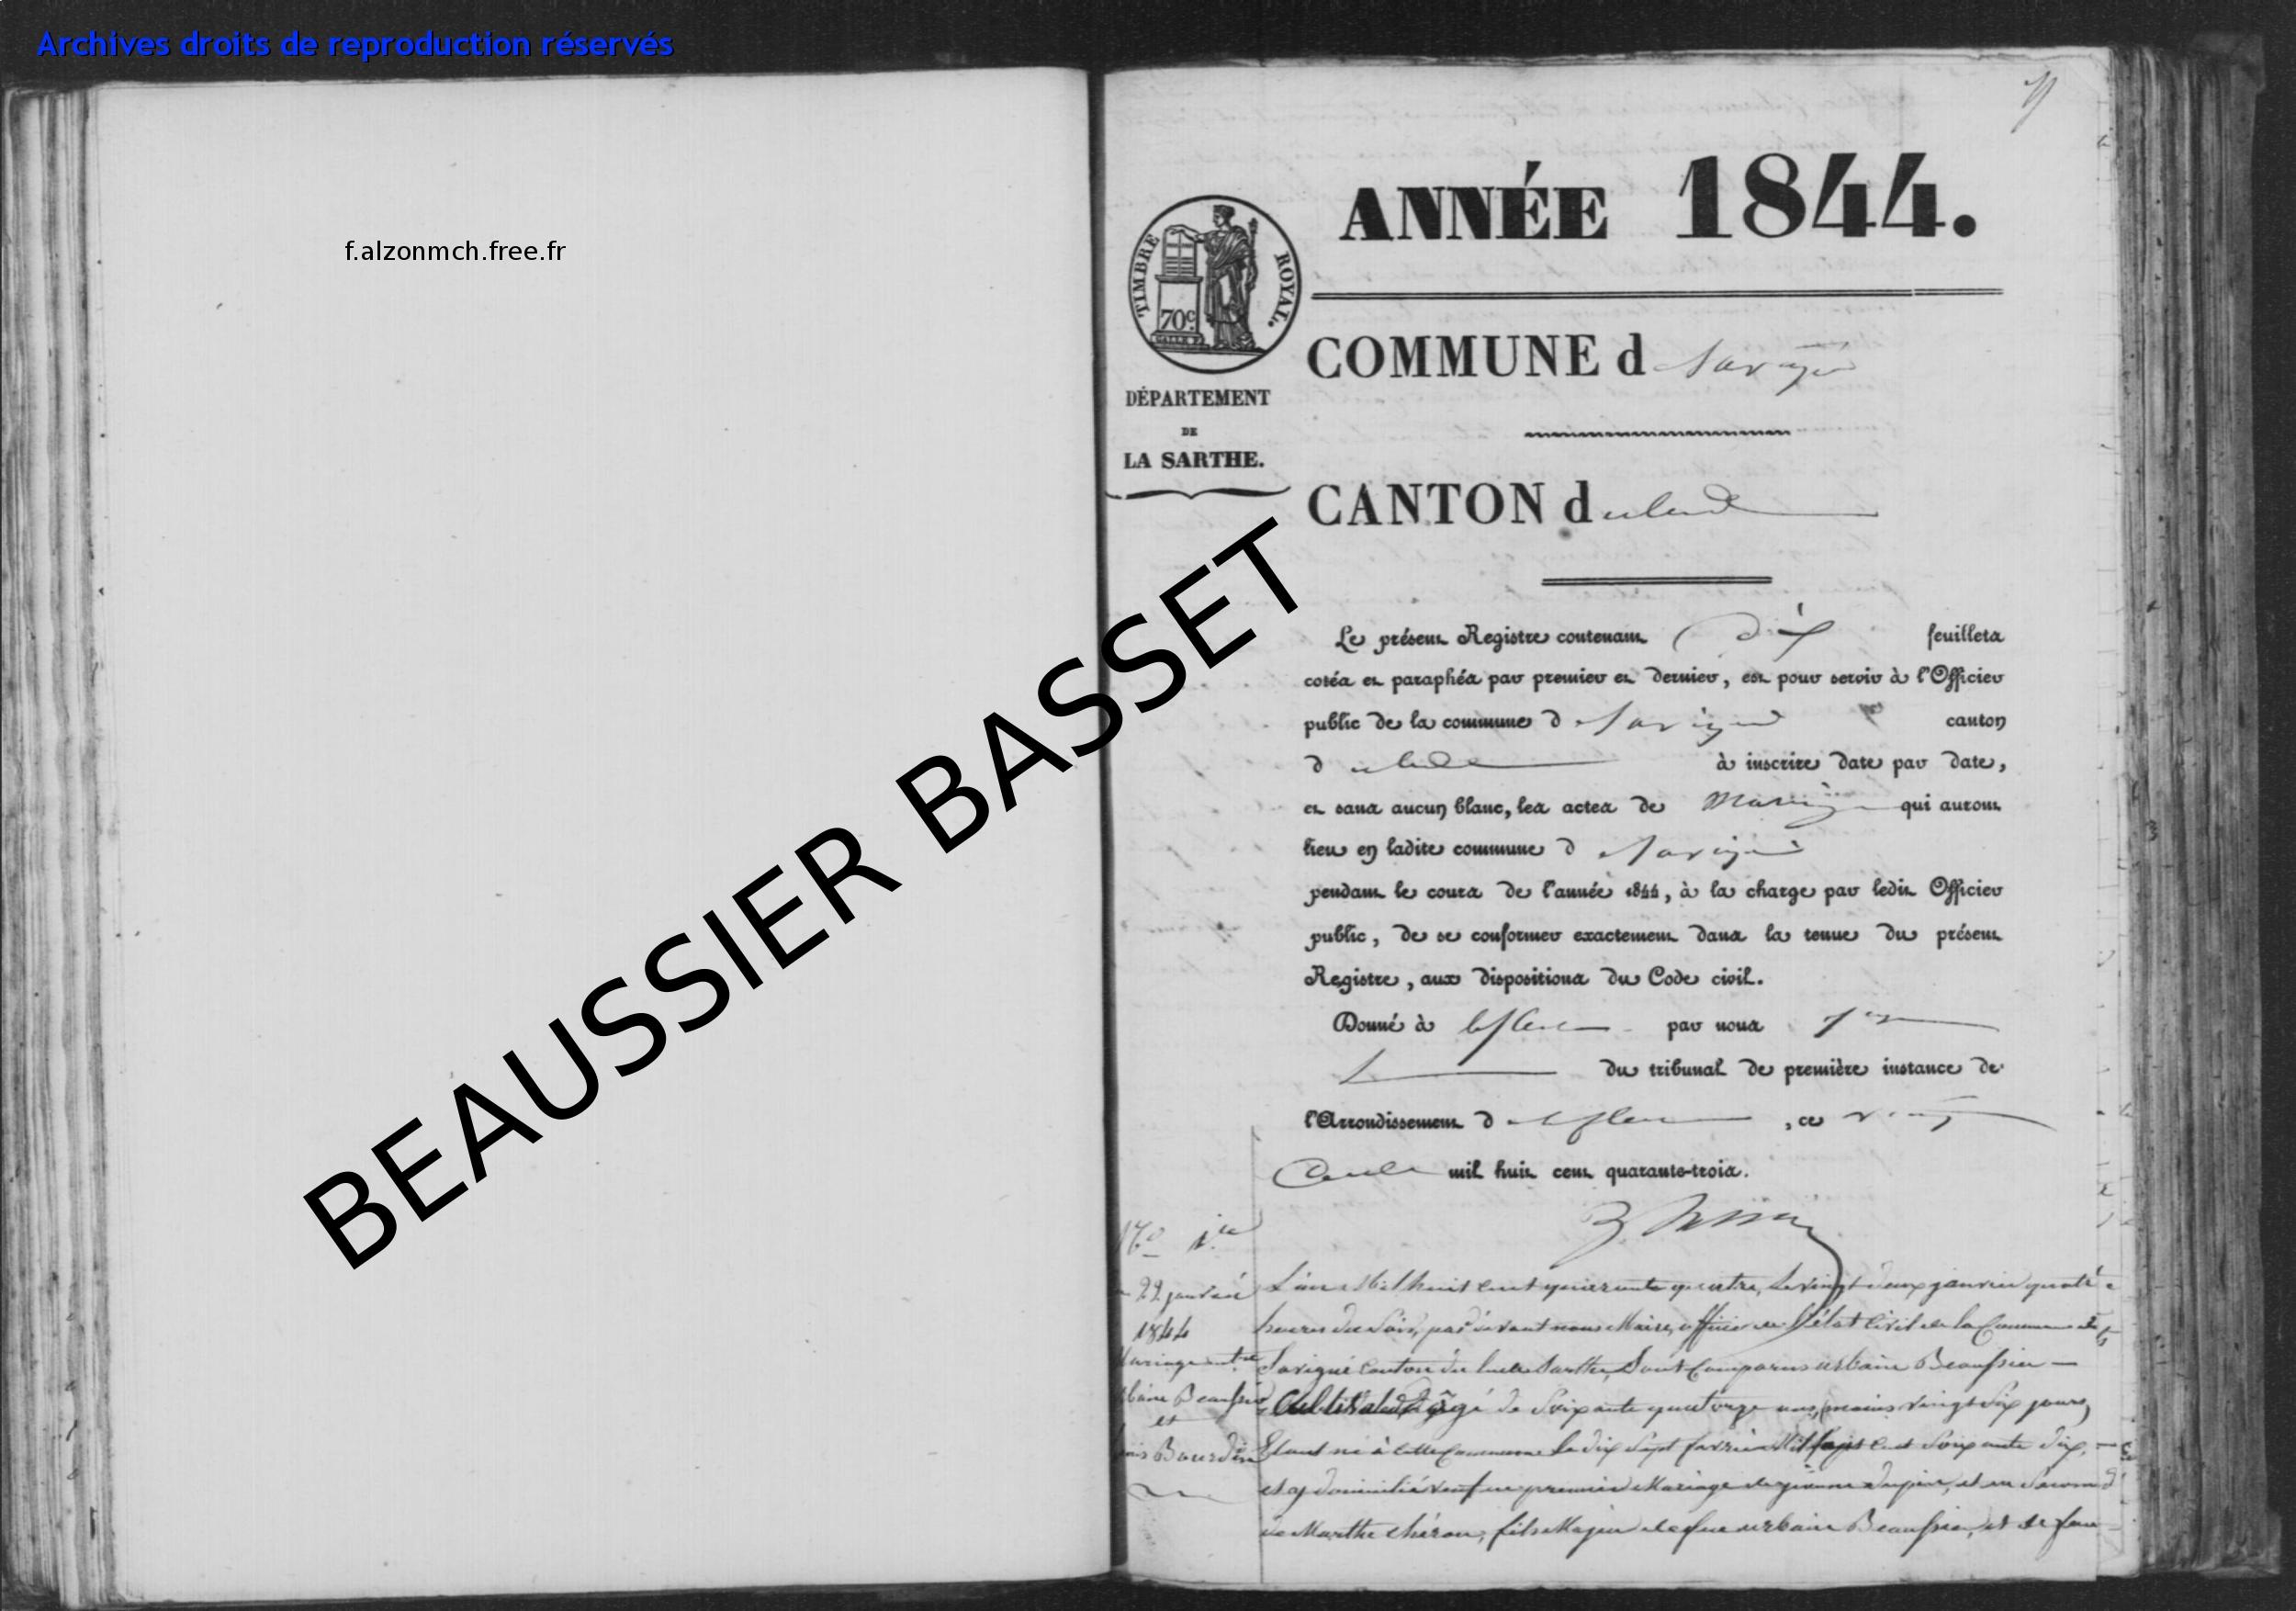 Archives droits de reproduction réservés
f.alzonmch.free.fr
BEAUSSIER BASSET
ANNÉE 1844.
TIMBRE ROYAL.
70c
DÉPARTEMENT
DE
LA SARTHE.
COMMUNE d Savigné
CANTON du lude
Le présent Registre contenant dix feuillets
cotés et paraphés par premier et dernier, est pour servir à l'Officier
public de la commune d Savigné canton
d u lude à inscrire date par date,
et sans aucun blanc, les actes de Mariage qui auront
lieu en ladite commune d Savigné
pendant le cours de l'année 1844, à la charge par ledit Officier
public, de se conformer exactement dans la tenue du présent
Registre, aux dispositions du Code civil.
Donné à par nous
du tribunal de première instance de
l'Arrondissement d , ce vingt
mil huit cent quarante-trois.
22 janvier
1844
Mariage entre
Beaussier
et
Bourdin
L'an Mil huit cent quarante quatre, le vingt deux janvier quatre
heures du Soir, par devant nous Maire, officier de l'état Civil de la Commune de
Savigné Canton du lude Sarthe, Sont Comparus urbain Beaussier
agé de Soixante quatorze ans, moins vingt Six jours,
Etant né à cette Commune le dix Sept février Mil Sept Cent Soixante dix,
et y domicilié veuf en premier Mariage de et en Second
de Marthe chéron, fils Majeur de feu urbain Beaussier, et de feue